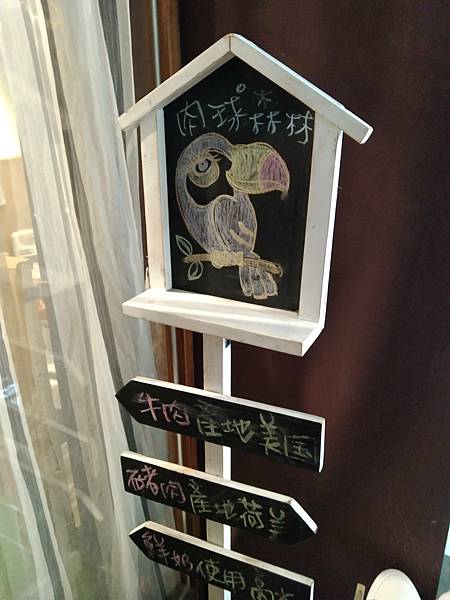 肉球森林
牛肉產地美国
豬肉產地荷美
鮮奶使用高